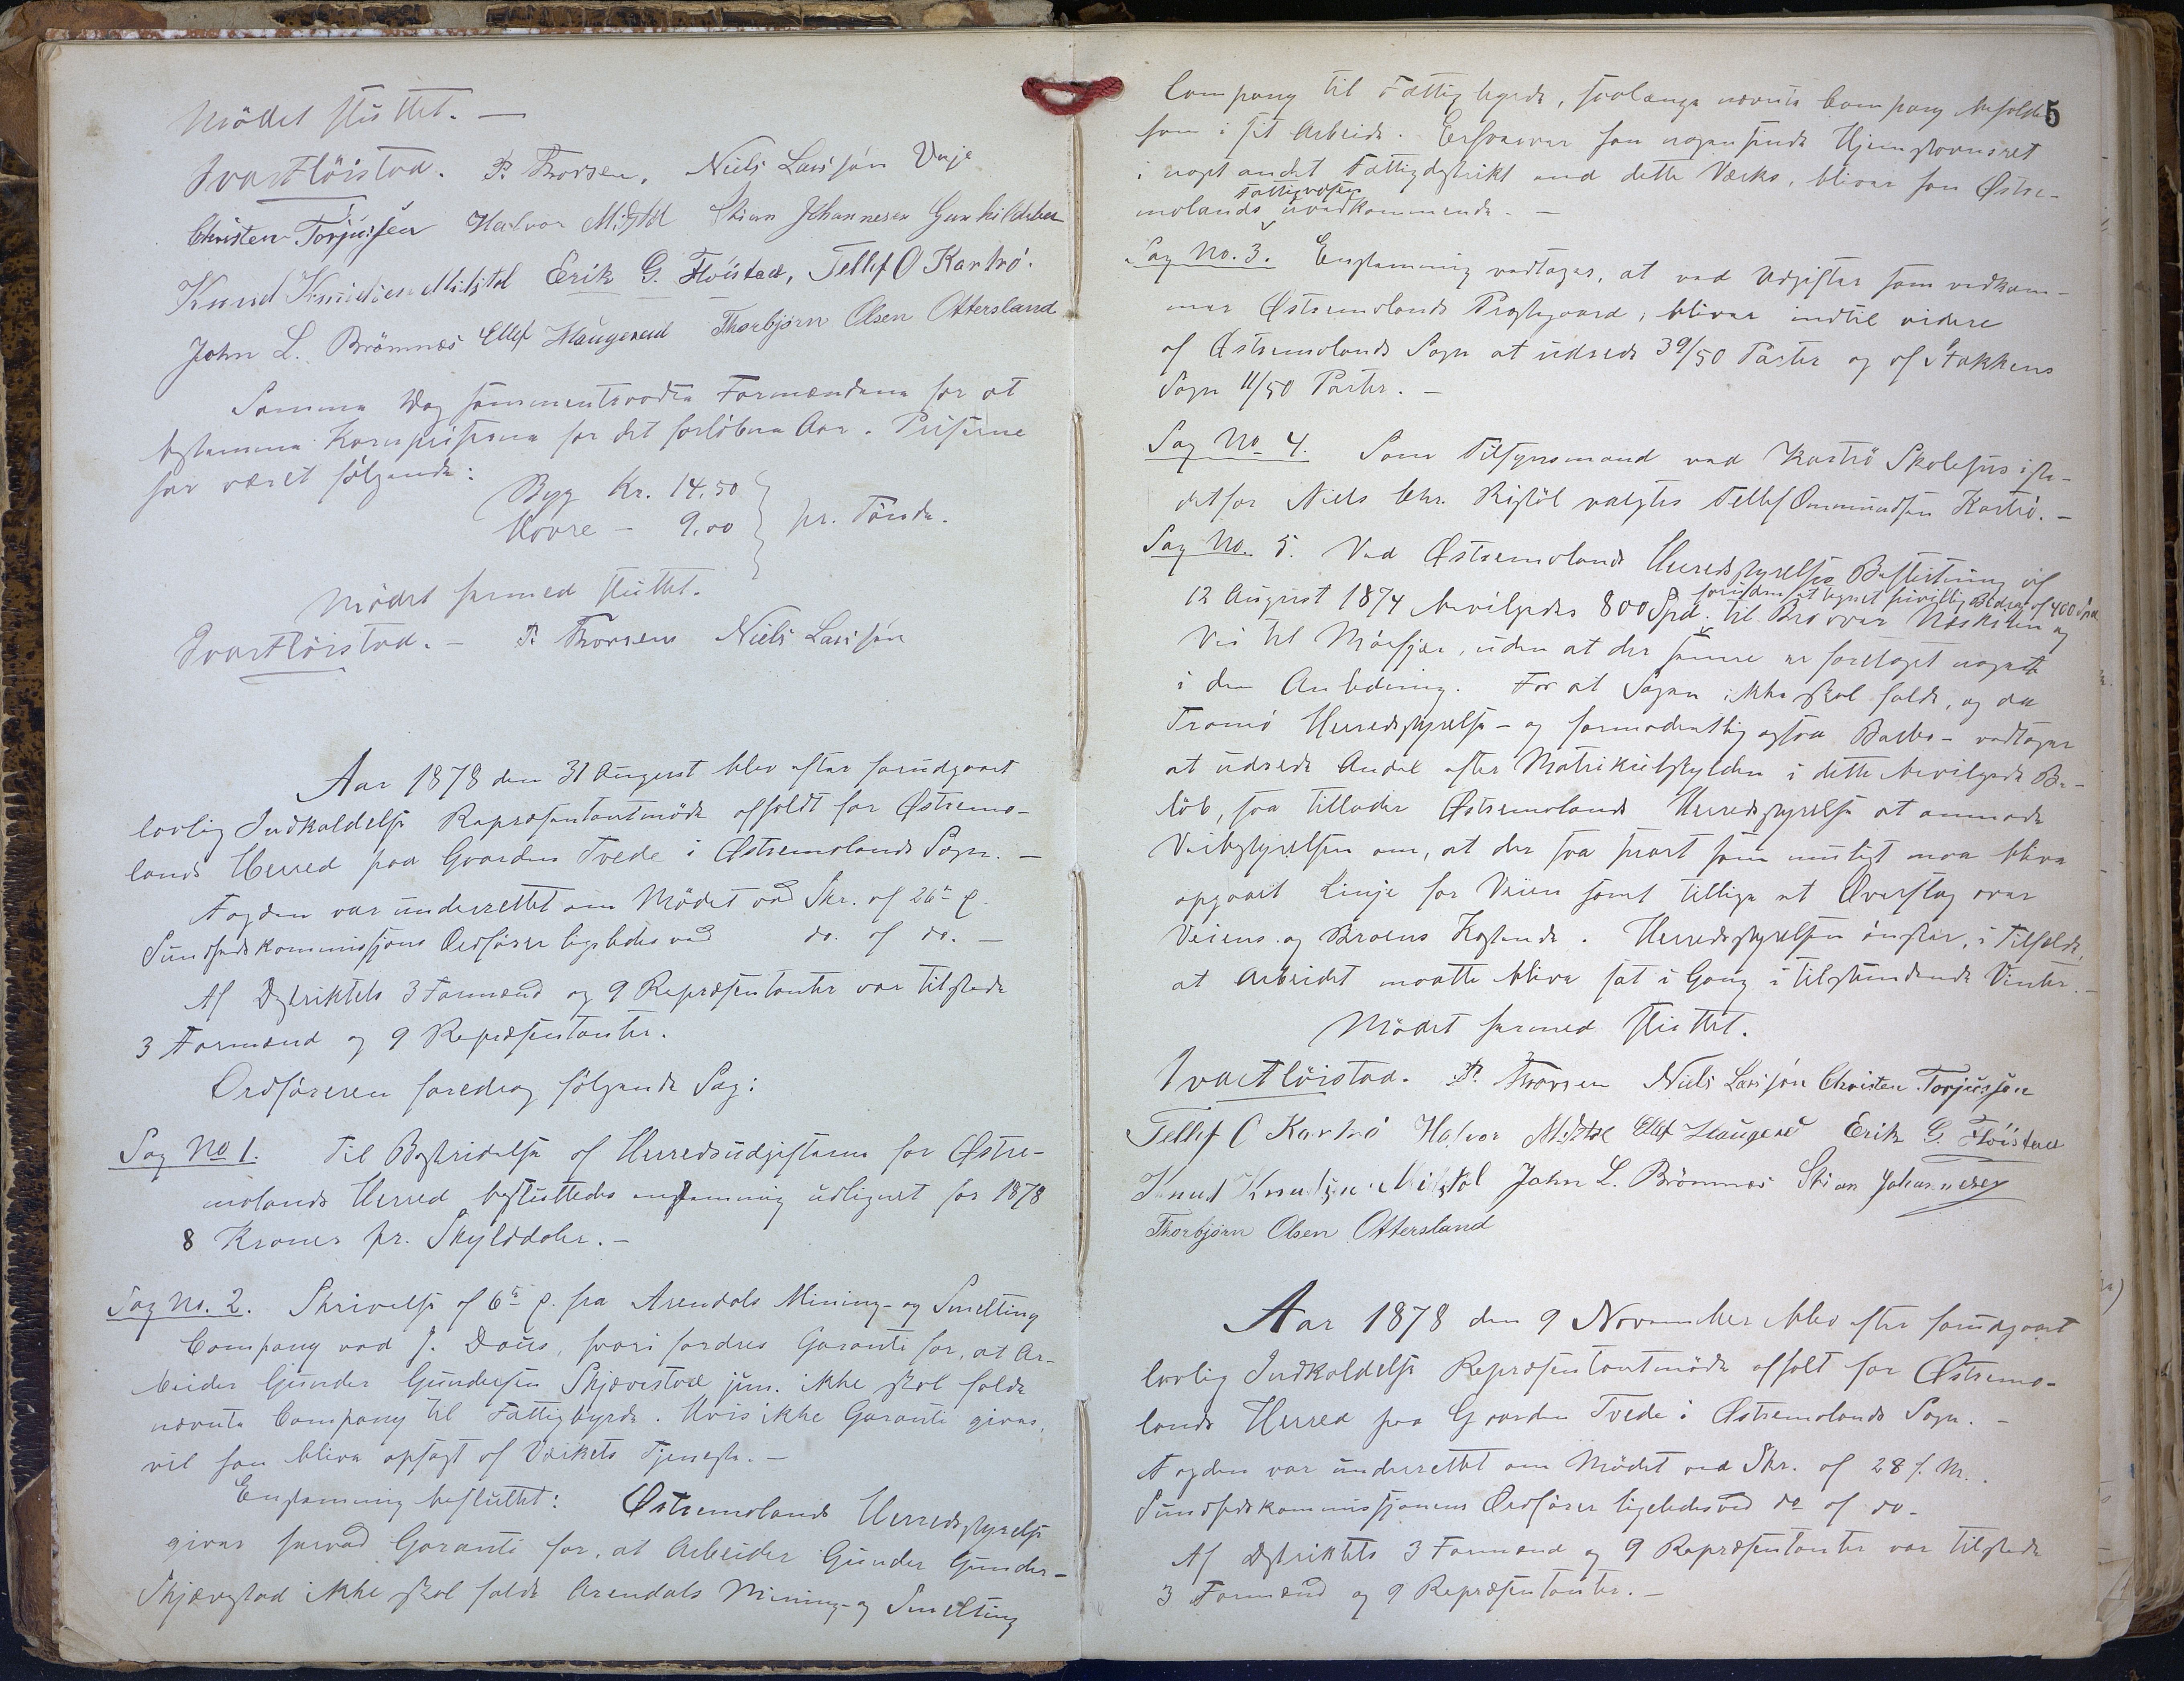 Mödet sluttet. —
Ivar Flöistad. P. Thorsen, Niels Larssön Veje
Christen Torjussen Halvor Mistöl Stian Johannesen Gunhildsboe
Knud Knudsen Mistöl Erik G. Flöistad, Tellef O Kartrö.
John L. Brömnes Ellef Haugened Thorbjørn Olsen Ottersland
Samme Dag sammentraadte Formændene for at
bestemme Kornpriserne for det forløbne Aar. Priserne
har været følgende:
Byg Kr. 14,50
Havre — 9,00 } pr. Tönde.
Mödet hermed sluttet.
Ivar Flöistad. — P. Thorsen Niels Larssön
Aar 1878 den 31 August blev efter forudgaaet
lovlig Indkaldelse Repræsentantmöde afholdt for Østremo-
lands Herred paa Gaarden Tvede i Østremolands Sogn. —
Fogden var underrettet om Mödet ved Skr. af 26de ds.
Sundhedskommissjons Ordförer ligeledes ved do. af do. —
Af Distriktets 3 Formænd og 9 Repræsentanter var tilstede
3 Formænd og 9 Repræsentanter.
Ordföreren foredrog følgende Sag:
Sag No 1. Til Bestridelse af Herredsudgifterne for Østre-
molands Herred besluttedes enstemmig udlignet for 1878
8 Kroner pr. Skylddaler. —
Sag No. 2. Skrivelse af 6te ds. fra Arendals Mining- og Smelting
Company ved J. Daus, hvori fordres Garanti for, at Ar-
beider Gunder Gundersen Skjævestad jun. ikke skal falde
nævnte Company til Fattigbyrde. Hvis ikke Garanti gives,
vil han blive opsagt af Værkets Tjeneste. —
Enstemmig besluttet: Østremolands Herredsstyrelse
giver herved Garanti for, at Arbeider Gunder Gunders-
Skjævestad ikke skal falde Arendals Mining- og Smelting
5
Company til Fattigbyrde, saalænge nævnte Company beholder
ham i sit Arbeide. Erhverver han nogensinde Hjemstavnsret
i noget andet Fattigdistrikt end dette Værks, bliver han Østre-
molands Fattigvæsen uvedkommende. —
Sag No. 3. Enstemmig vedtages, at ved Udgifter som vedkom-
mer Østremolands Præstegaard, bliver indtil videre
af Østremolands Sogn at udrede 39/50 Parter og af Stokkens
Sogn 11/50 Parter. —
Sag No 4. Som Tilsynsmand ved Kartrö Skolehus iste-
detfor Niels Chr. Risböl valgtes Tellef Ommundsen Kartrö. —
Sag No. 5. Ved Østremolands Herredsstyrelses Beslutning af
12 August 1874 bevilgedes 800 Spd. foruden et tegnet frivillig Bidrag af 400 Spd til Bro over Neskilen og
Vei til Mörfjær, uden at der senere er foretaget noget
i den Anledning. For at Sagen ikke skal falde, og da
Tromö Herredsstyrelse — og formodentlig ogsaa Barbo — vedtager
at udrede Andel efter Matrikulskylden i dette bevilgede Be-
löb, saa tillader Østremolands Herredsstyrelse at anmode
Veibestyrelsen om, at der saa snart som muligt maa blive
opgaaet Linje for Veien samt tillige et Overslag over
Veiens og Broens Kostende. Herredsstyrelsen önsker, i Tilfælde,
at Arbeidet maatte blive sat i Gang i tilstundende Vinter. —
Mödet hermed sluttet.
Ivar Flöistad. P. Thorsen Niels Larssön Christen Torjussen
Tellef O Kartrö Halvor Mistöl Ellef Haugened Erik G. Flöistad
Knud Knudsen Mistöl John L. Brömnes Stian Johannesen
Thorbjørn Olsen Ottersland
Aar 1878 den 9 November blev efter forudgaaet
lovlig Indkaldelse Repræsentantmöde afholdt for Østremo-
lands Herred paa Gaarden Tvede i Østremolands Sogn. —
Fogden var underrettet om Mödet ved Skr. af 28 f. M.
Sundhedskommissjonens Ordförer ligeledes ved do af do —
Af Distriktets 3 Formænd og 9 Repræsentanter var tilstede
3 Formænd og 9 Repræsentanter. —